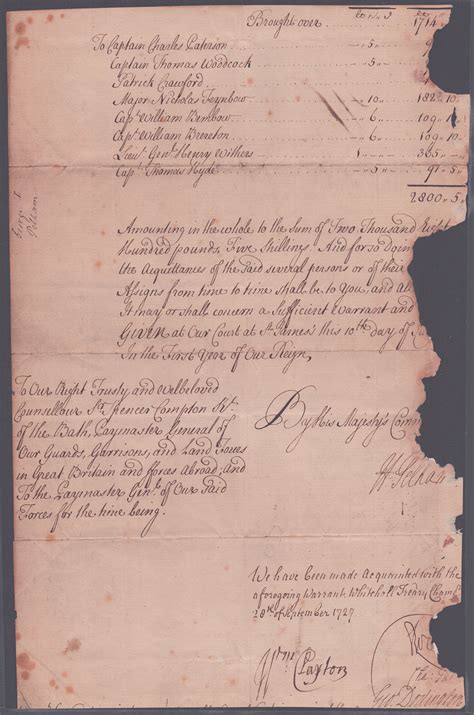 Brought over 1714
To Captain Charles Paterson 5
Captain Thomas Woodcock 5
Patrick Crawford 5
Major Nicholas Fenbow 10 182 10
Capt. William Bimbow 6 109 1
Capt. William Brereton 6 109 10
Lieut. Genl. Henry Withers 1 365
Capt. Thomas Hyde 5 91 5
2800 5
George I
Pelham
Amounting in the whole to the Sum of Two Thousand Eight
Hundred pounds, Five Shillings And for so doing
the Acquittances of the said several persons or of their
Assigns from time to time shall be to you, and All
It may or shall concern a Sufficient Warrant and
GIVEN at Our Court at St. James's this 10th day of
In the First Year of Our Reign,
To Our Right Trusty and Welbeloved
Counsellour Sr. Spencer Compton Kt.
of the Bath, Paymaster General of
Our Guards, Garrisons, and Land Forces
in Great Britain and forces Abroad; And
To the Paymaster Genl. of Our said
Forces for the time being.
By His Majesty's Comm
H Pelham
We have been made Acquainted with the
aforegoing Warrant Whitehall Treary Chamb
28th of September 1727.
Wm Clayton
Geo Dodington